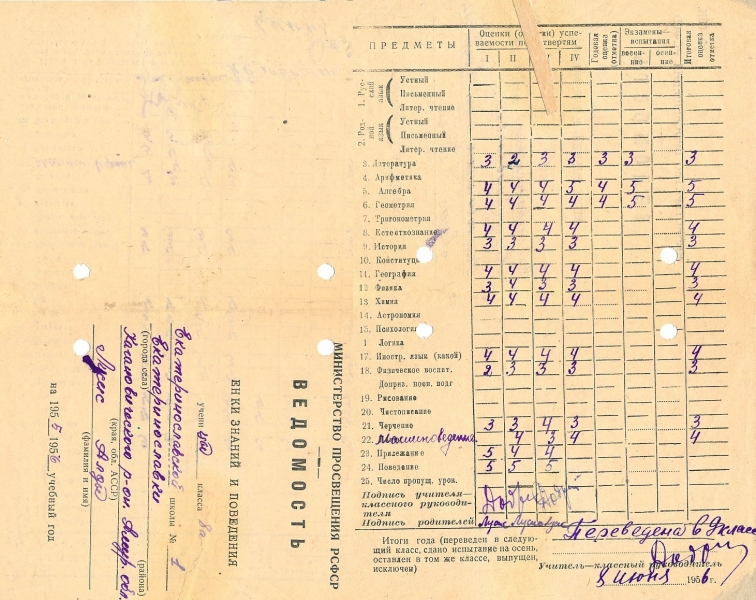 ПРЕДМЕТЫ
Оценки успеваемости по четвертям
I II IV
Годовая оценка (отметка)
Экзамены—испытания
весенние осенние
Итоговая оценка отметка
1. Русский язык
Устный
Письменный
Литер. чтение
2. Родной язык
Устный
Письменный
Литер. чтение
3. Литература 3 2 3 3 3 3 3
4. Арифметика
5. Алгебра 4 4 4 5 4 5 5
6. Геометрия 4 4 4 4 4 5 5
7. Тригонометрия
8. Естествознание 4 4 4 4 4
9. История 3 3 3 3 3
10. Конституц
11. География 4 4 4 4 4
12 Физика 3 4 3 3 3
13 Химия 4 4 4 4 4
14. Астрономия
15. Психология
1 Логика
17. Иностр. язык (какой) 4 4 4 4 4
18. Физическое воспит. 2 3 3 3 3
Допризв. воен. подг
19. Рисование
20. Чистописание
21. Черчение 3 3 4 3 3
22. Машиноведение 4 3 4 4
23. Прилежание 5 4 4
24. Поведение 5 5 5
25. Число пропущ. урок.
Подпись учителя—
классного руководи-
теля
Подпись родителей Лусис
Итоги года (переведен в следую-
щий класс, сдано испытание на осень,
оставлен в том же классе, выпущен,
исключен)
Переведена в 9 класс
Учитель—классный руководитель
8 июня 1956 г.
МИНИСТЕРСТВО ПРОСВЕЩЕНИЯ РСФСР
ВЕДОМОСТЬ
ЕНКИ ЗНАНИЙ И ПОВЕДЕНИЯ
учени цы класса 8а
Екатеринославской школы № 1
Екатеринославки
(города села) (района)
Кагановического р-он. Амур. обл.
(края, обл. АССР)
Лусис
(фамилия и имя)
на 1955 1956 учебный год